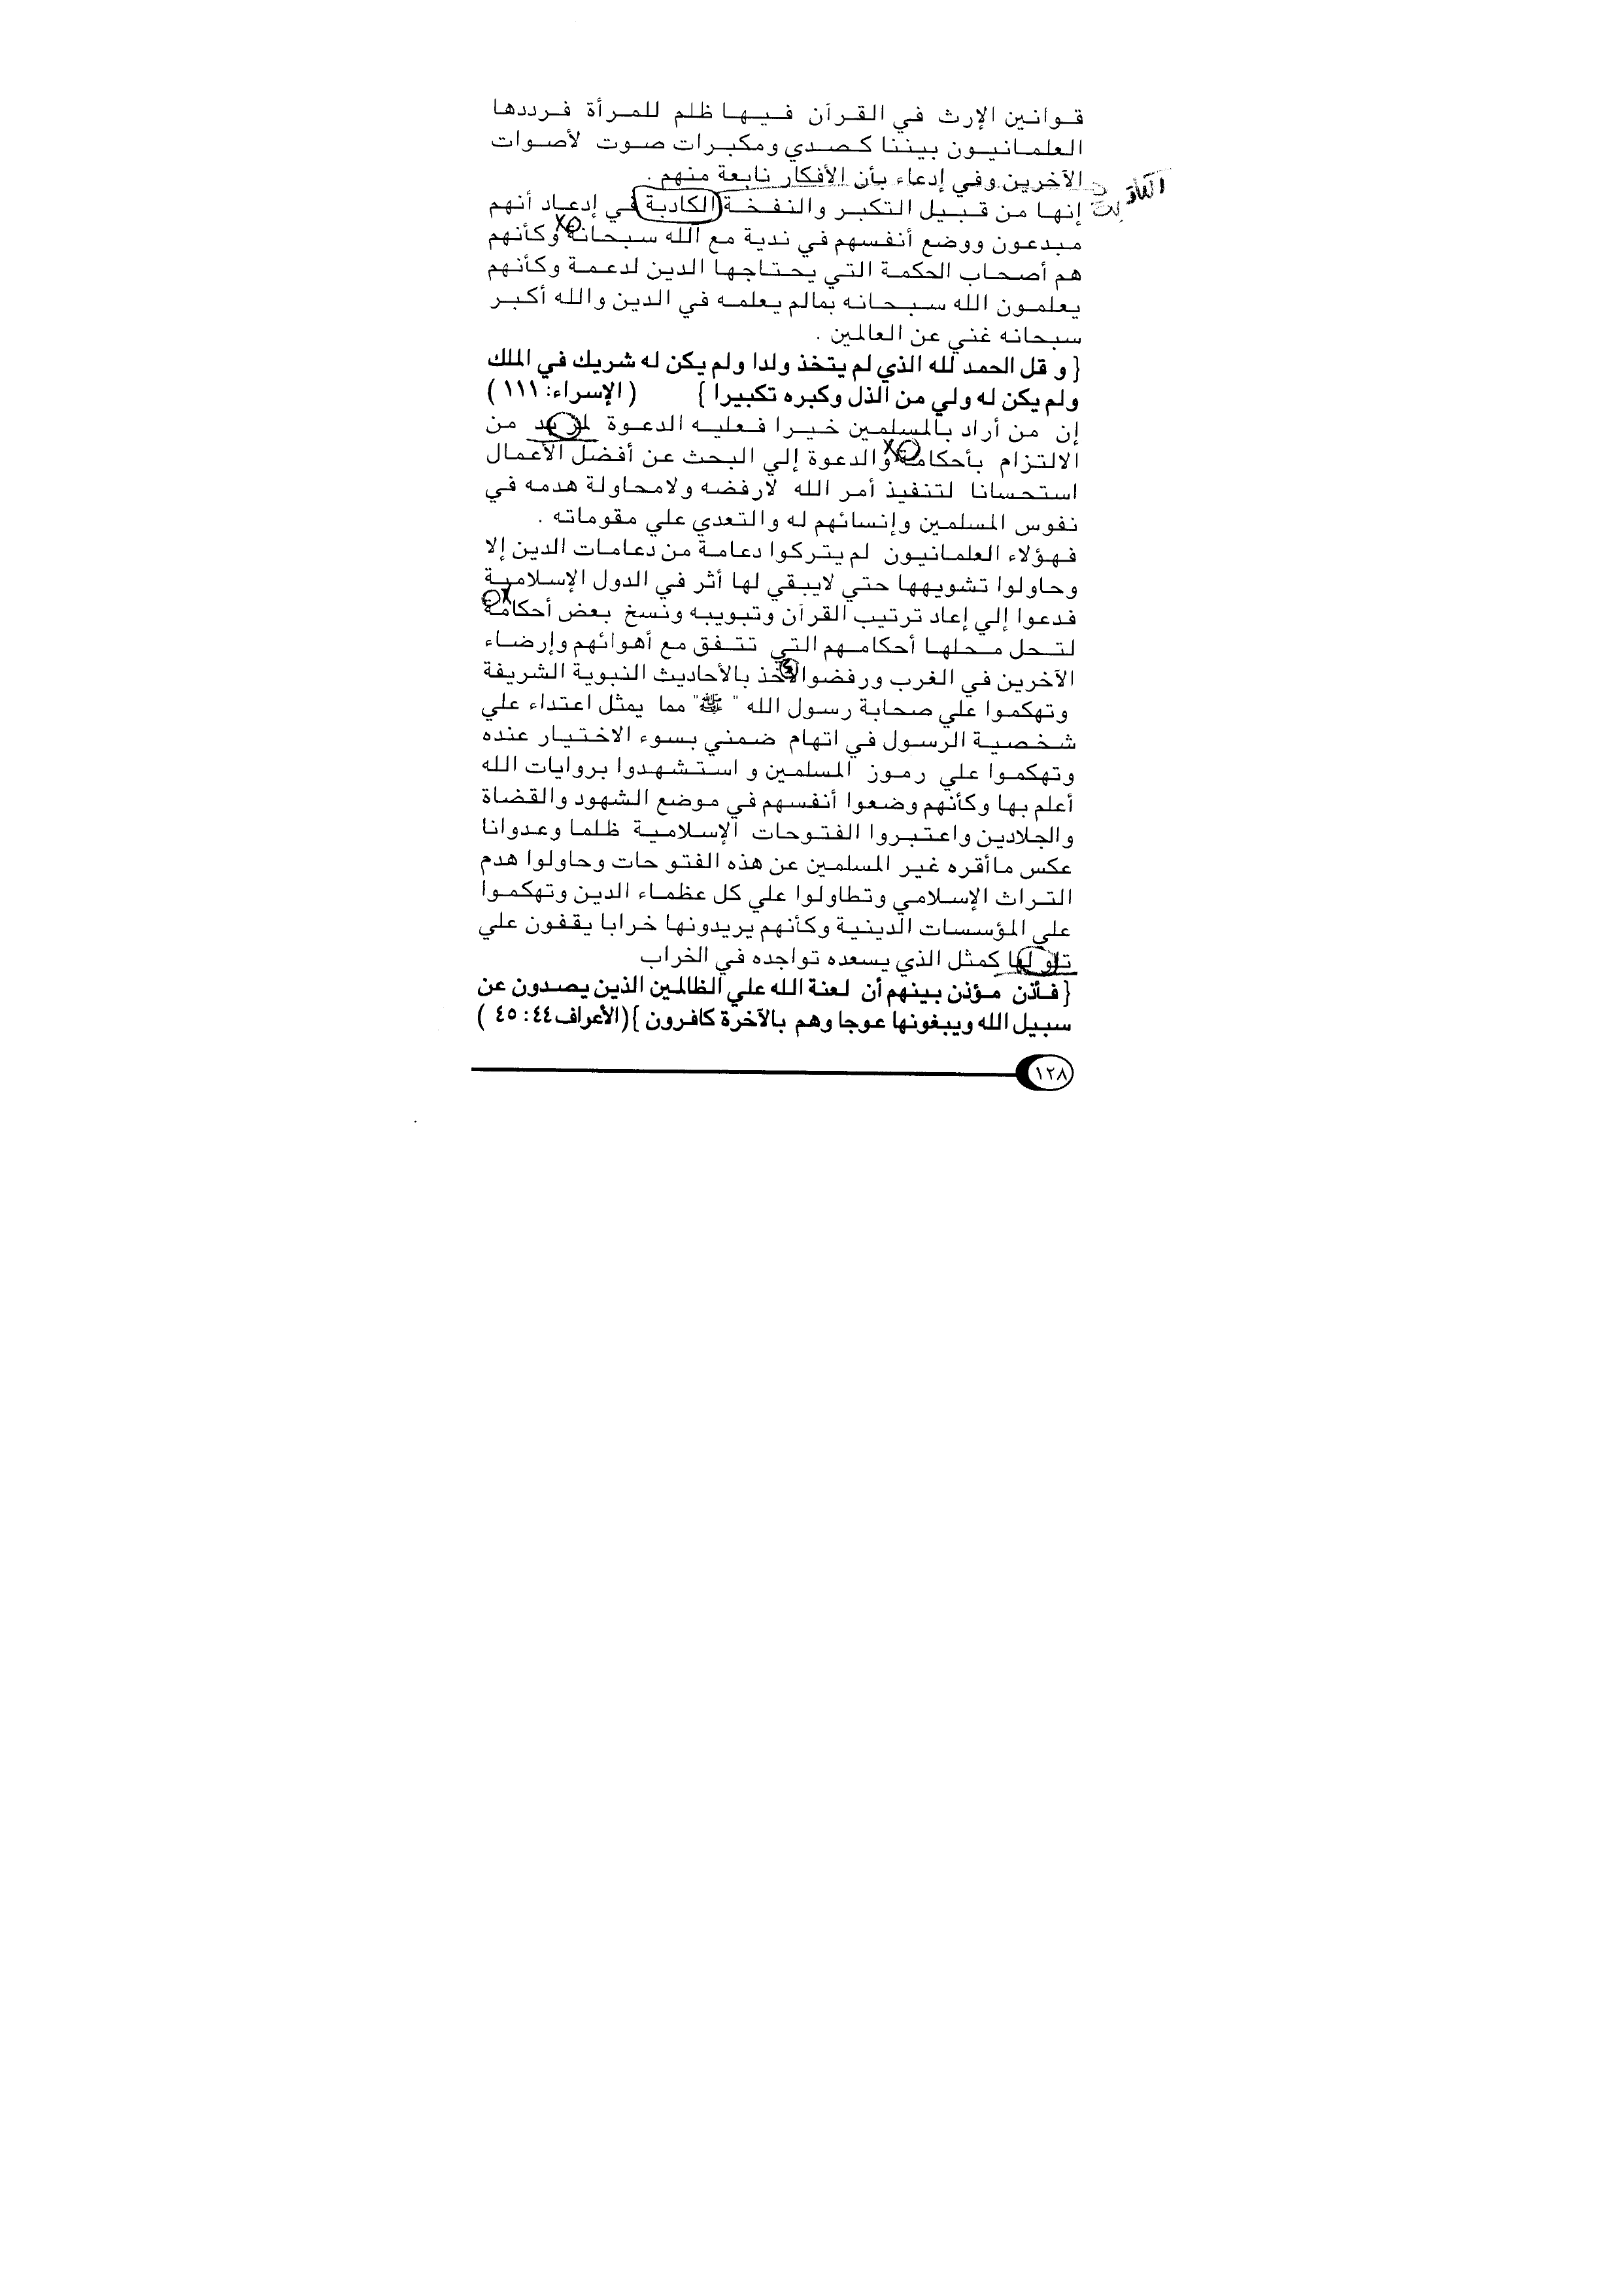 قوانين الإرث في القرآن فيها ظلم للمرأة فرددها
العلمانيون بيننا كصدي ومكبرات صوت لأصوات
الآخرين وفي إدعاء بأن الأفكار نابعة منهم .
إنها من قبيل التكبر والنفخة الكادبة في إدعاد أنهم
مبدعون ووضع أنفسهم في ندية مع الله سبحانة وكأنهم
هم أصحاب الحكمة التي يحتاجها الدين لدعمة وكأنهم
يعلمون الله سبحانه بمالم يعلمه في الدين والله أكبر
سبحانه غني عن العالمين .
{و قل الحمد لله الذي لم يتخذ ولدا ولم يكن له شريك في الملك
ولم يكن له ولي من الذل وكبره تكبيرا } ( الإسراء: ١١١ )
إن من أراد بالمسلمين خيرا فعليه الدعوة من
الالتزام بأحكامة والدعوة إلي البحث عن أفضل الأعمال
استحسانا لتنفيذ أمر الله لارفضه ولامحاولة هدمه في
نفوس المسلمين وإنسائهم له والتعدي علي مقوماته .
فهؤلاء العلمانيون لم يتركوا دعامة من دعامات الدين إلا
وحاولوا تشويهها حتي لايبقي لها أثر في الدول الإسلامية
فدعوا إلي إعاد ترتيب القرآن وتبويبه ونسخ بعض أحكامة
لتحل محلها أحكامهم التي تتفق مع أهوائهم وإرضاء
الآخرين في الغرب ورفضوا بالأحاديث النبوية الشريفة
وتهكموا علي صحابة رسول الله " ﷺ" مما يمثل اعتداء علي
شخصية الرسول في اتهام ضمني بسوء الاختيار عنده
وتهكموا علي رموز المسلمين و استشهدوا بروايات الله
أعلم بها وكأنهم وضعوا أنفسهم في موضع الشهود والقضاة
والجلادين واعتبروا الفتوحات الإسلامية ظلما وعدوانا
عكس ماأقره غير المسلمين عن هذه الفتو حات وحاولوا هدم
التراث الإسلامي وتطاولوا علي كل عظماء الدين وتهكموا
علي المؤسسات الدينية وكأنهم يريدونها خرابا يقفون علي
كمثل الذي يسعده تواجده في الخراب
{ فأذن مؤذن بينهم أن لعنة الله علي الظالمين الذين يصدون عن
سبيل الله ويبغونها عوجا وهم بالآخرة كافرون }(الأعراف٤٤: ٤٥ )
١٢٨